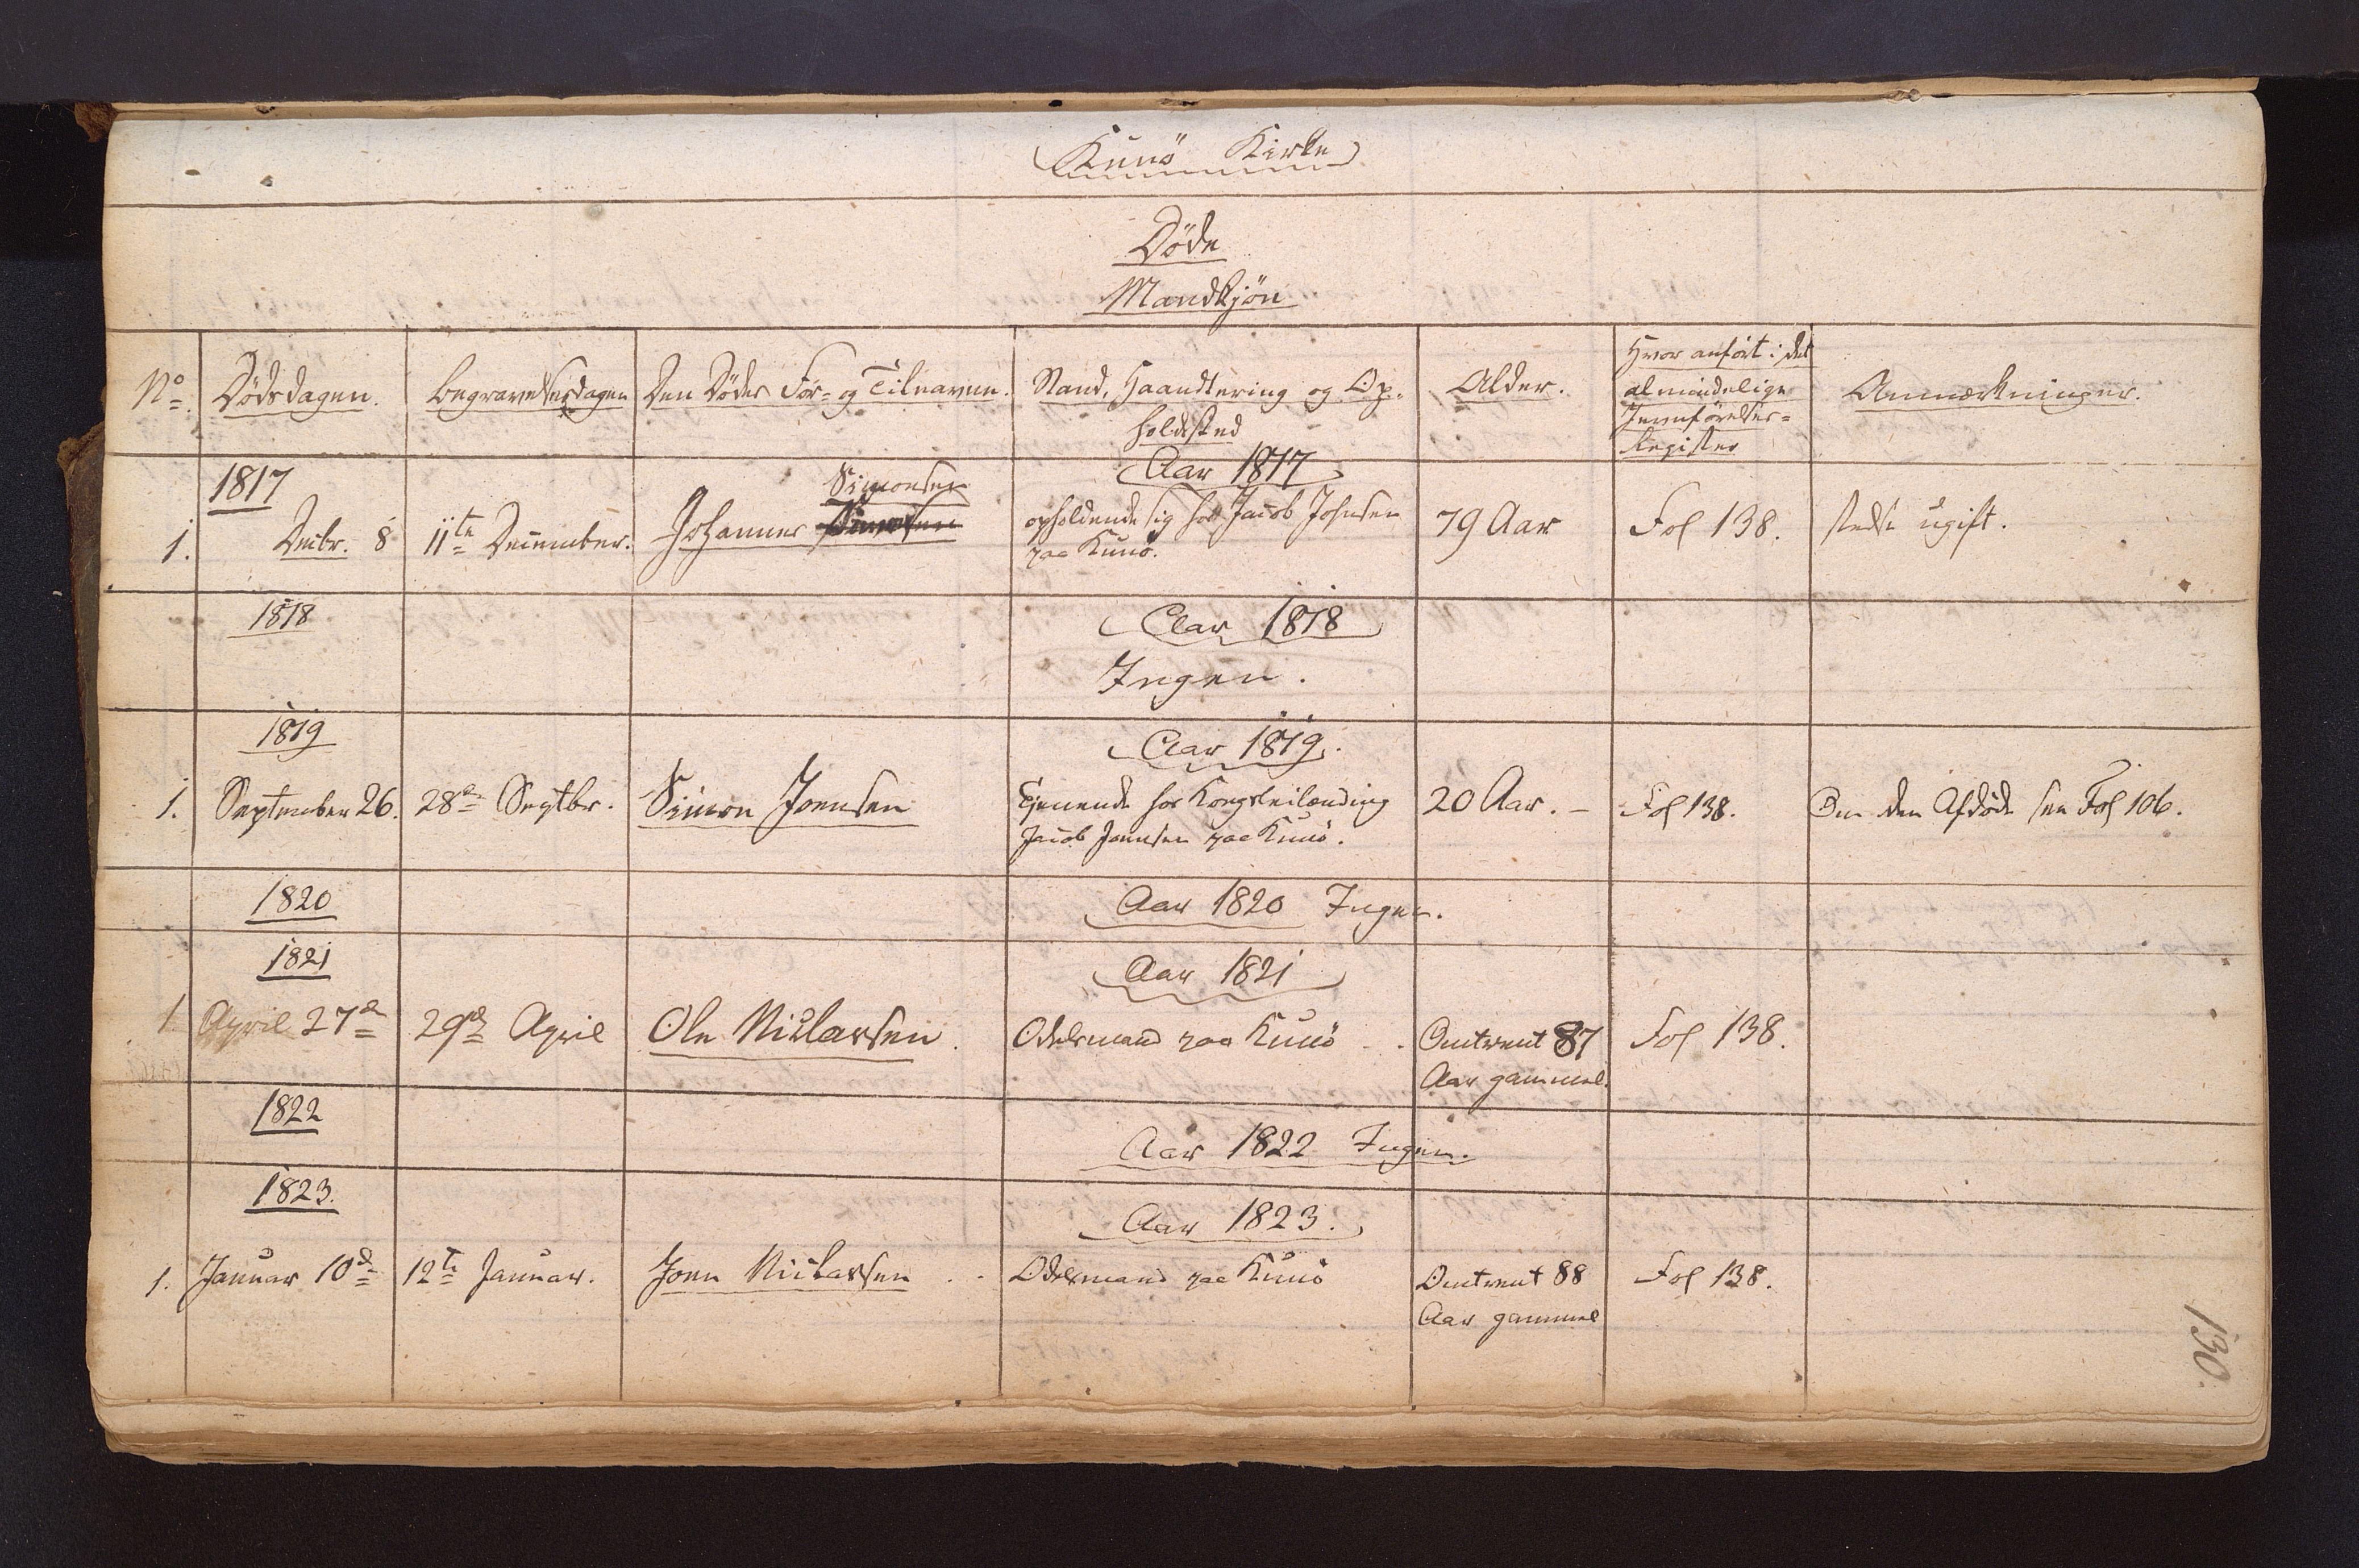 Kunö Kirke
Döde
Mandkjön
No. Dödsdagen. Begravelsesdagen Den Dödes For- og Tilnavnn. Stand, Haandtering og Op- Alder. Hvor anfört i det Anmærkninger.
holdssted almindelige
Jevnförelses-
Register
1817 Aar 1817
Simonsen
1. Decbr. 8 11te December. Johannes opholdende sig hos Jacob Johnsen 79 Aar Fol 138. stedse ugift.
paa Kunö.
1818 Aar 1818
Ingen.
1819 Aar 1819.
1. September 26. 28de Septbr. Simon Joensen Tjenende hos Kongsleilænding 20 Aar. - Fol 138. Om den Afdöde see Fol 106.
Jacob Joensen paa Kunö.
1820 Aar 1820 Ingen.
1821 Aar 1821
1 April 27de 29de April Ole Niclassen. Odelsmand paa Kunö Omtrent 87 Fol 138.
Aar gammel.
1822
Aar 1822 Ingen.
1823. Aar 1823.
1. Januar 10de 12te Januar. Joen Niclassen Odelsmand paa Kunö Omtrent 88 Fol 138.
Aar gammel
130.